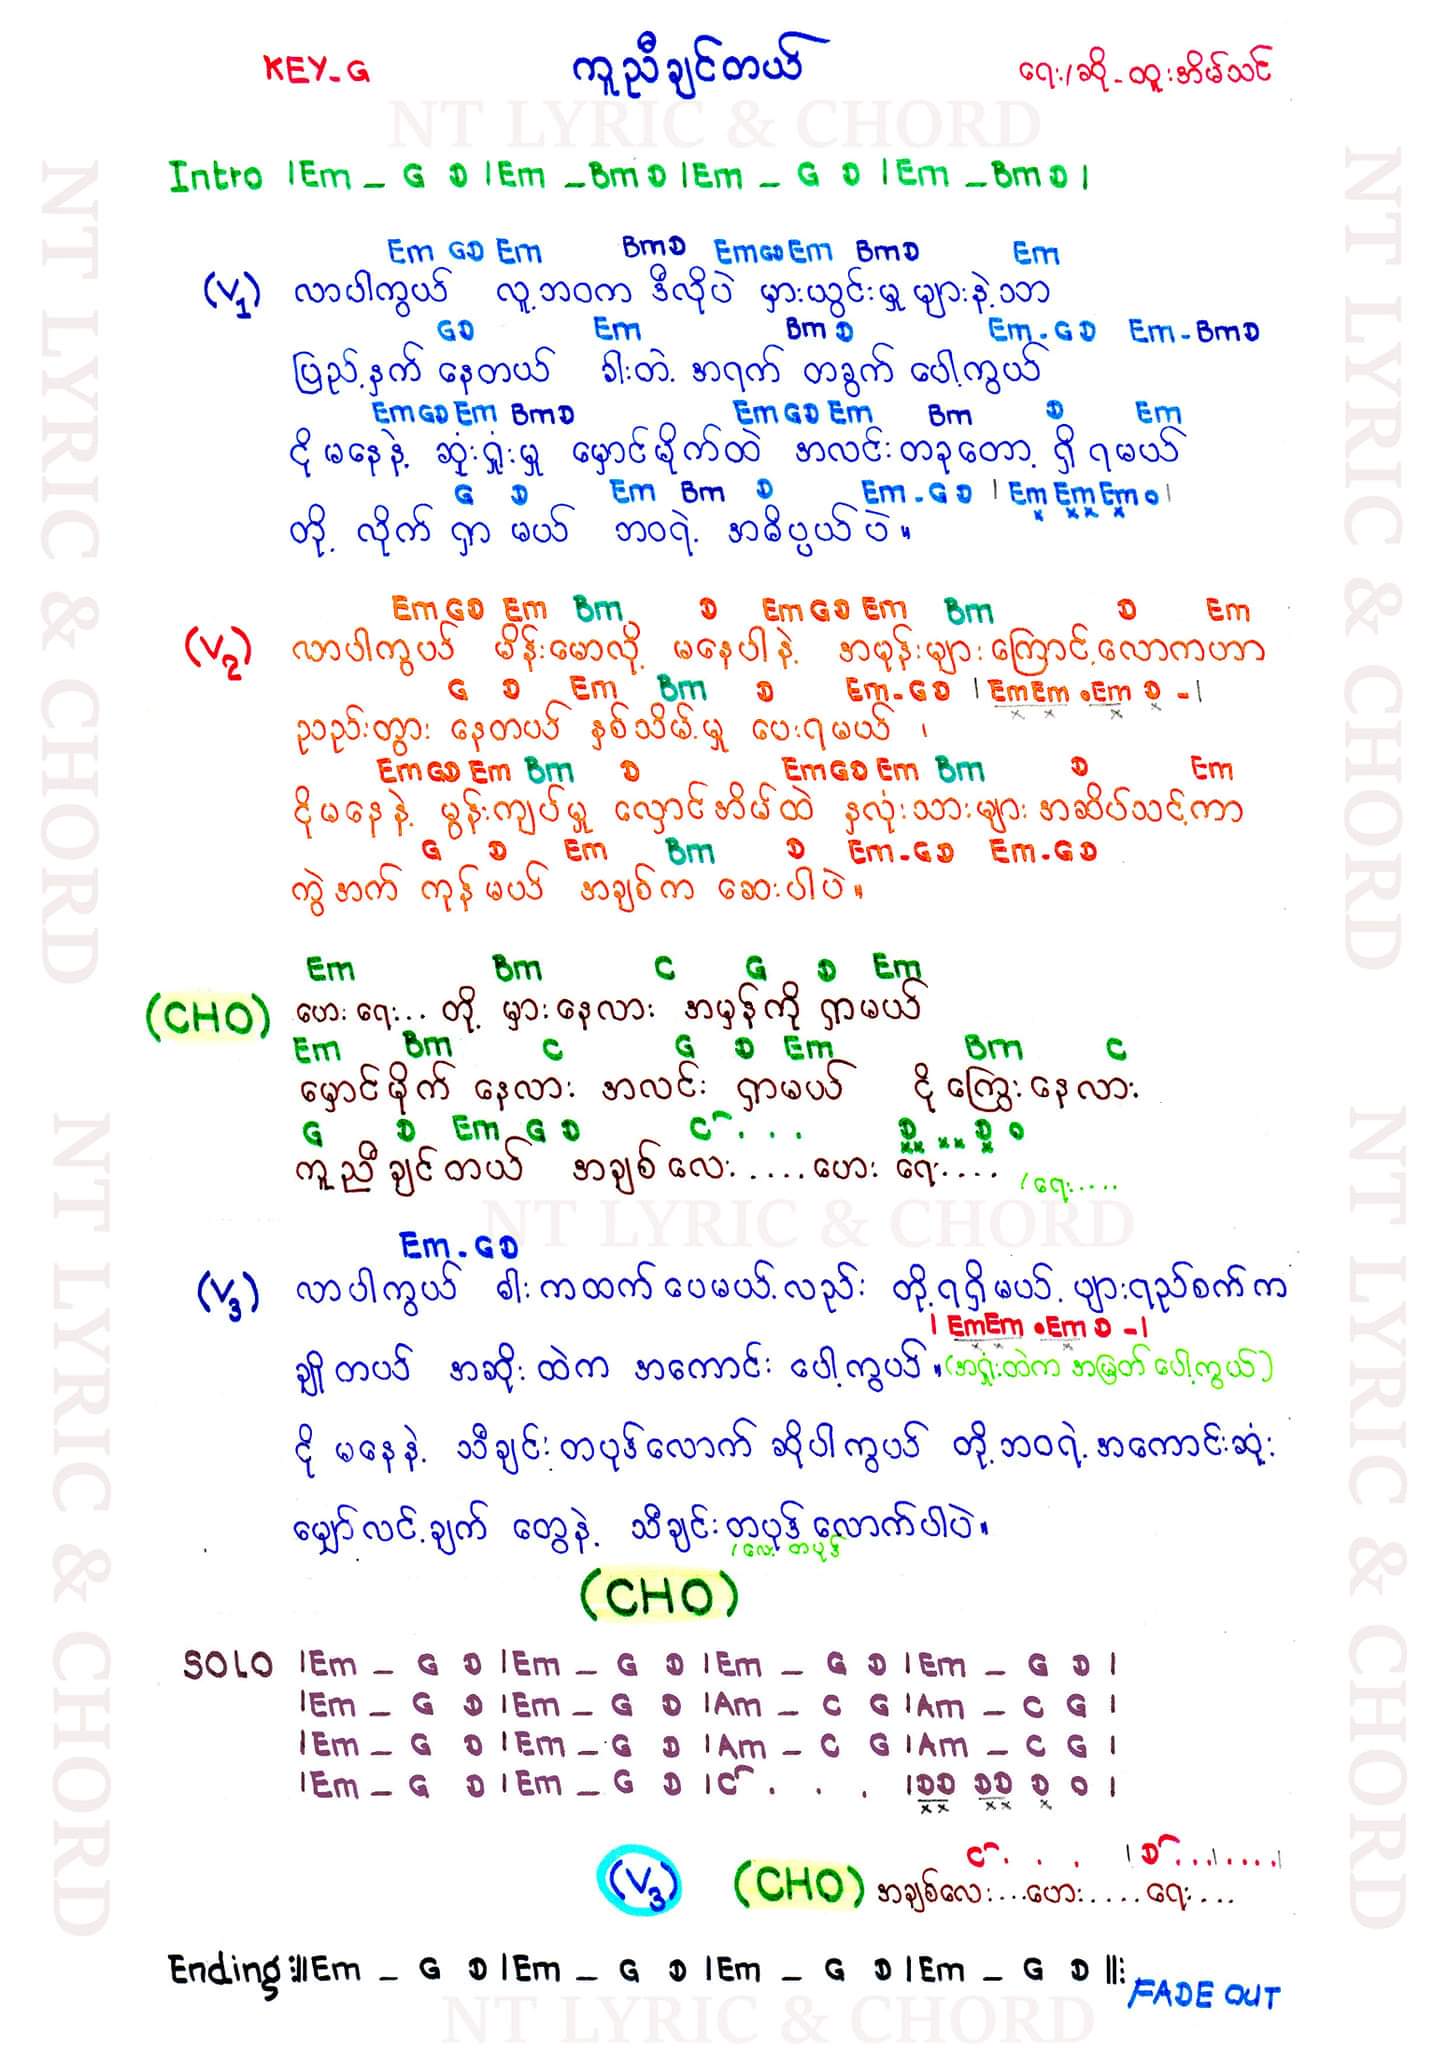 KEY-G ကူညီချင်တယ် ရေး/ဆို-ထူးအိမ်သင်
NT LYRIC & CHORD
Intro |Em _ G D |Em _ Bm D |Em _ G D |Em _ Bm D |
Em G D Em Bm D Em G D Em Bm D Em
(V1) လာပါကွယ် လူ့ဘဝက ဒီလိုပဲ မှားယွင်းမှု များနဲ့သာ
G D Em Bm D Em - G D Em - Bm D
ပြည့်နှက် နေတယ် ခါးတဲ့ အရက် တခွက် ပေါ့ကွယ်
Em G D Em Bm D Em G D Em Bm D Em
ငိုမနေနဲ့ ဆုံးရှုံးမှု မှောင်မိုက်ထဲ အလင်းတခုတော့ ရှိရမယ်
G D Em Bm D Em - G D | Em Em Em o |
တို့ လိုက် ရှာ မယ် ဘဝရဲ့ အဓိပ္ပယ်ပဲ။
Em G D Em Bm D Em G D Em Bm D Em
(V2) လာပါကွယ် မိန်းမောလို့ မနေပါနဲ့ အမုန်းများကြောင့်လောကဟာ
G D Em Bm D Em - G D | Em Em • Em D - |
ညည်းတွား နေတယ် နှစ်သိမ့်မှု ပေးရမယ် ၊
Em G D Em Bm D Em G D Em Bm D Em
ငိုမနေနဲ့ မွန်းကျပ်မှု လှောင်အိမ်ထဲ နှလုံးသားများ အဆိပ်သင့်ကာ
G D Em Bm D Em - G D Em - G D
ကွဲအက် ကုန်မယ် အချစ်က ဆေးပါပဲ။
Em Bm C G D Em
(CHO) ဟေးရေး... တို့ မှားနေလား အမှန်ကို ရှာမယ်
Em Bm C G D Em Bm C
မှောင်မိုက် နေလား အလင်း ရှာမယ် ငို ကြွေးနေလား
G D Em G D C . . . D D o
ကူညီ ချင်တယ် အချစ်လေး.....ဟေး ရေး.... (ရေး.....
NT LYRIC & CHORD
Em - G D
(V3) လာပါကွယ် ခါးကထက်ပေမယ့်လည်း တို့ရရှိမယ့် ပျားရည်စက်က
| Em Em • Em D - |
ချိုတယ် အဆိုးထဲက အကောင်း ပေါ့ကွယ်။ (အရှုံးထဲက အမြတ်ပေါ့ကွယ်)
ငို မနေနဲ့ သီချင်းတပုဒ်လောက် ဆိုပါကွယ် တို့ဘဝရဲ့အကောင်းဆုံး
မျှော်လင့်ချက် တွေနဲ့ သီချင်းတပုဒ်လောက်ပါပဲ။
/လေး တပုဒ်
(CHO)
SOLO |Em _ G D |Em _ G D |Em _ G D |Em _ G D |
|Em _ G D |Em _ G D |Am _ C G |Am _ C G |
|Em _ G D |Em _ G D |Am _ C G |Am _ C G |
|Em _ G D |Em _ G D |C . . . |DD DD D o |
C . . . | D . . . | . . . . |
(V3) (CHO) အချစ်လေး...ဟေး....ရေး...
Ending |Em _ G D |Em _ G D |Em _ G D |Em _ G D |
FADE OUT
NT LYRIC & CHORD
NT LYRIC & CHORD
NT LYRIC & CHORD
NT LYRIC & CHORD
NT LYRIC & CHORD